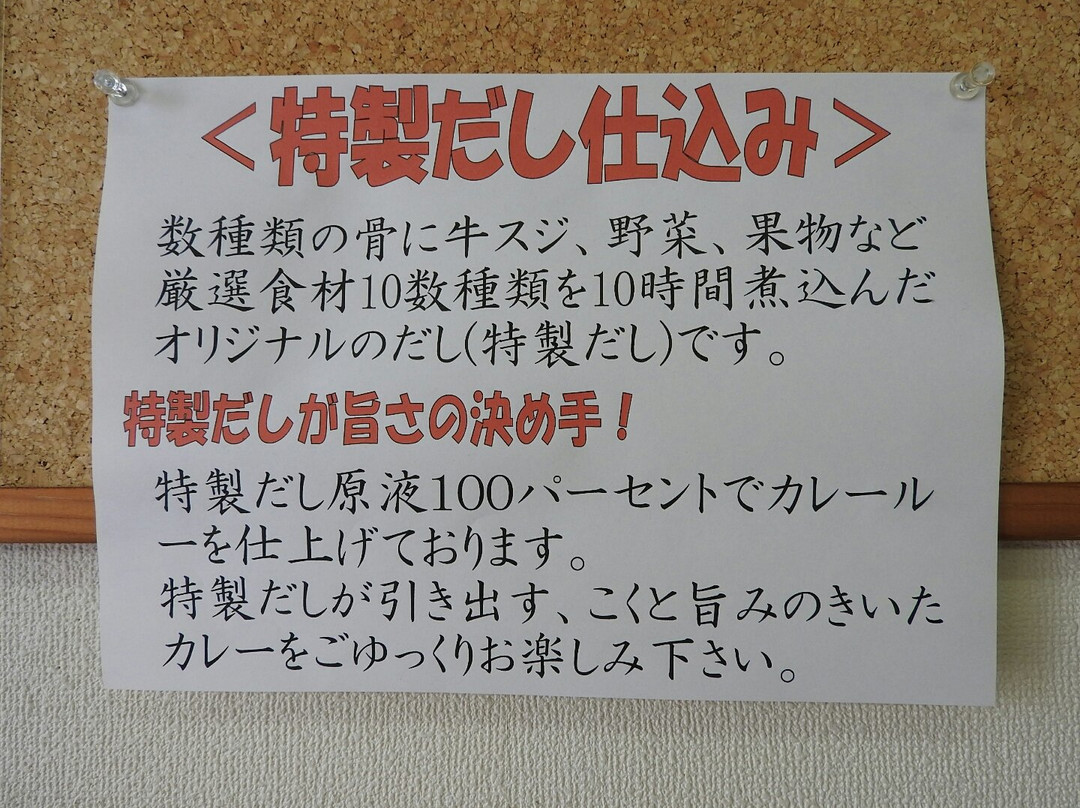 ＜特製だし仕込み＞
数種類の骨に牛スジ、野菜、果物など
厳選食材10数種類を10時間煮込んだ
オリジナルのだし(特製だし)です。
特製だしが旨さの決め手！
特製だし原液100パーセントでカレール
ーを仕上げております。
特製だしが引き出す、こくと旨みのきいた
カレーをごゆっくりお楽しみ下さい。